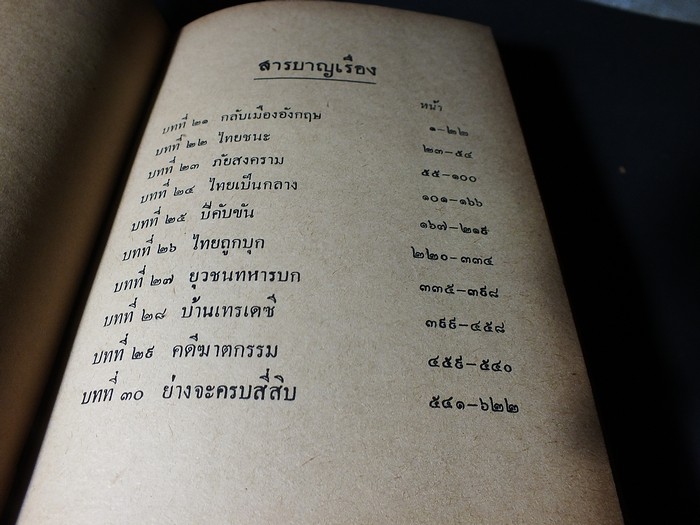 สารบาญเรื่อง
หน้า
บทที่ ๒๑ กลับเมืองอังกฤษ ๑-๒๒
บทที่ ๒๒ ไทยชนะ ๒๓-๕๔
บทที่ ๒๓ ภัยสงคราม ๕๕-๑๐๐
บทที่ ๒๔ ไทยเป็นกลาง ๑๐๑-๑๖๖
บทที่ ๒๕ บีคับขัน ๑๖๗-๒๑๙
บทที่ ๒๖ ไทยถูกบุก ๒๒๐-๓๓๔
บทที่ ๒๗ ยุวชนทหารบก ๓๓๕-๓๙๘
บทที่ ๒๘ บ้านเทรเดซี ๓๙๙-๔๕๘
บทที่ ๒๙ คดีฆาตกรรม ๔๕๙-๕๔๐
บทที่ ๓๐ ย่างจะครบสี่สิบ ๕๔๑-๖๒๒